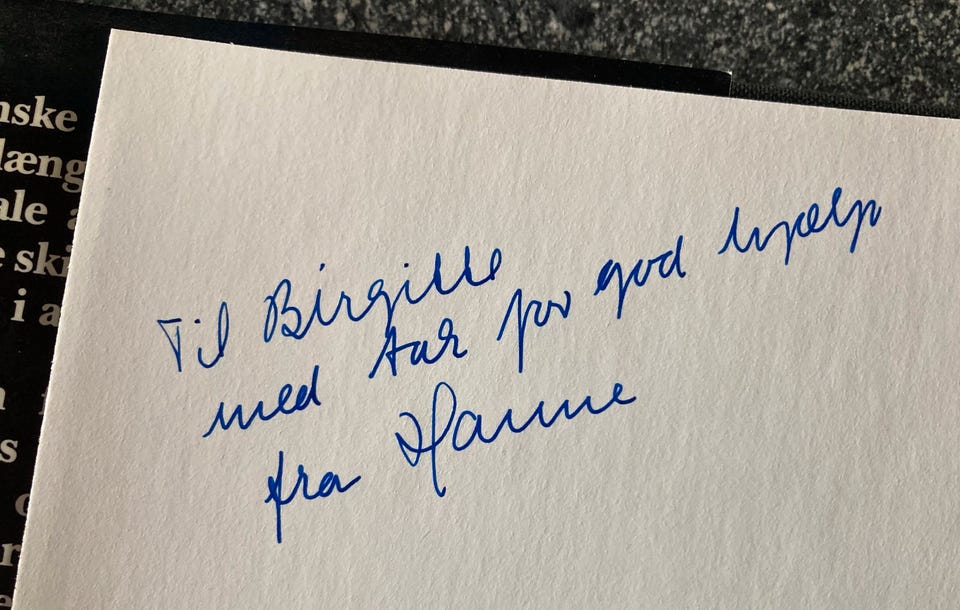 nske
læng
ale a
e ski
i a
Til Birgitte
med tak for god hjælp
fra Hanne